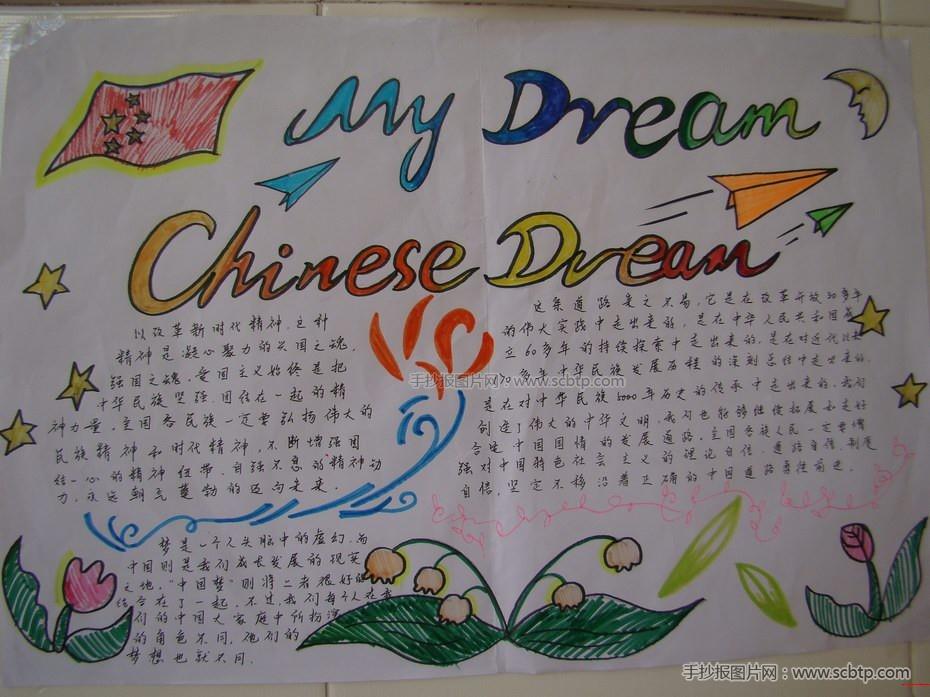 My Dream
Chinese Dream
以改革新时代精神.这种
精神是凝心聚力的兴国之魂、
强国之魂、爱国主义始终是把
中华民族坚强团结在一起的精
神力量,全国各民族一定要弘扬伟大的
民族精神和时代精神,不断增强团
结一心的精神纽带、自强不息的精神动
力,永远朝气蓬勃的迈向未来.
这条道路来之不易,它是在改革开放30多年
的伟大实践中走出来的,是在中华人民共和国成
立60多年的持续探索中走出来的,是在对近代以来
170多年中华民族发展历程的深刻总结中走出来的,
是在对中华民族5000年历史的传承中走出来的,我们
创造了伟大的中华文明,我们也能够继续拓展和走好
合适中国国情的发展道路.全国各族人民一定要增
强对中国特色社会主义的理论自信、道路自信、制度
自信,坚定不移沿着正确的中国道路勇往前进.
梦是一个人头脑中的虚幻.而
中国则是我们成长发展的现实
之地,"中国梦"则将二者很好的
结合在了一起.不过,我们每个人在我
们的中国大家庭中所扮演
的角色不同,他们的
梦想也就不同.
手抄报图片网 www.scbtp.com
手抄报图片网:www.scbtp.com